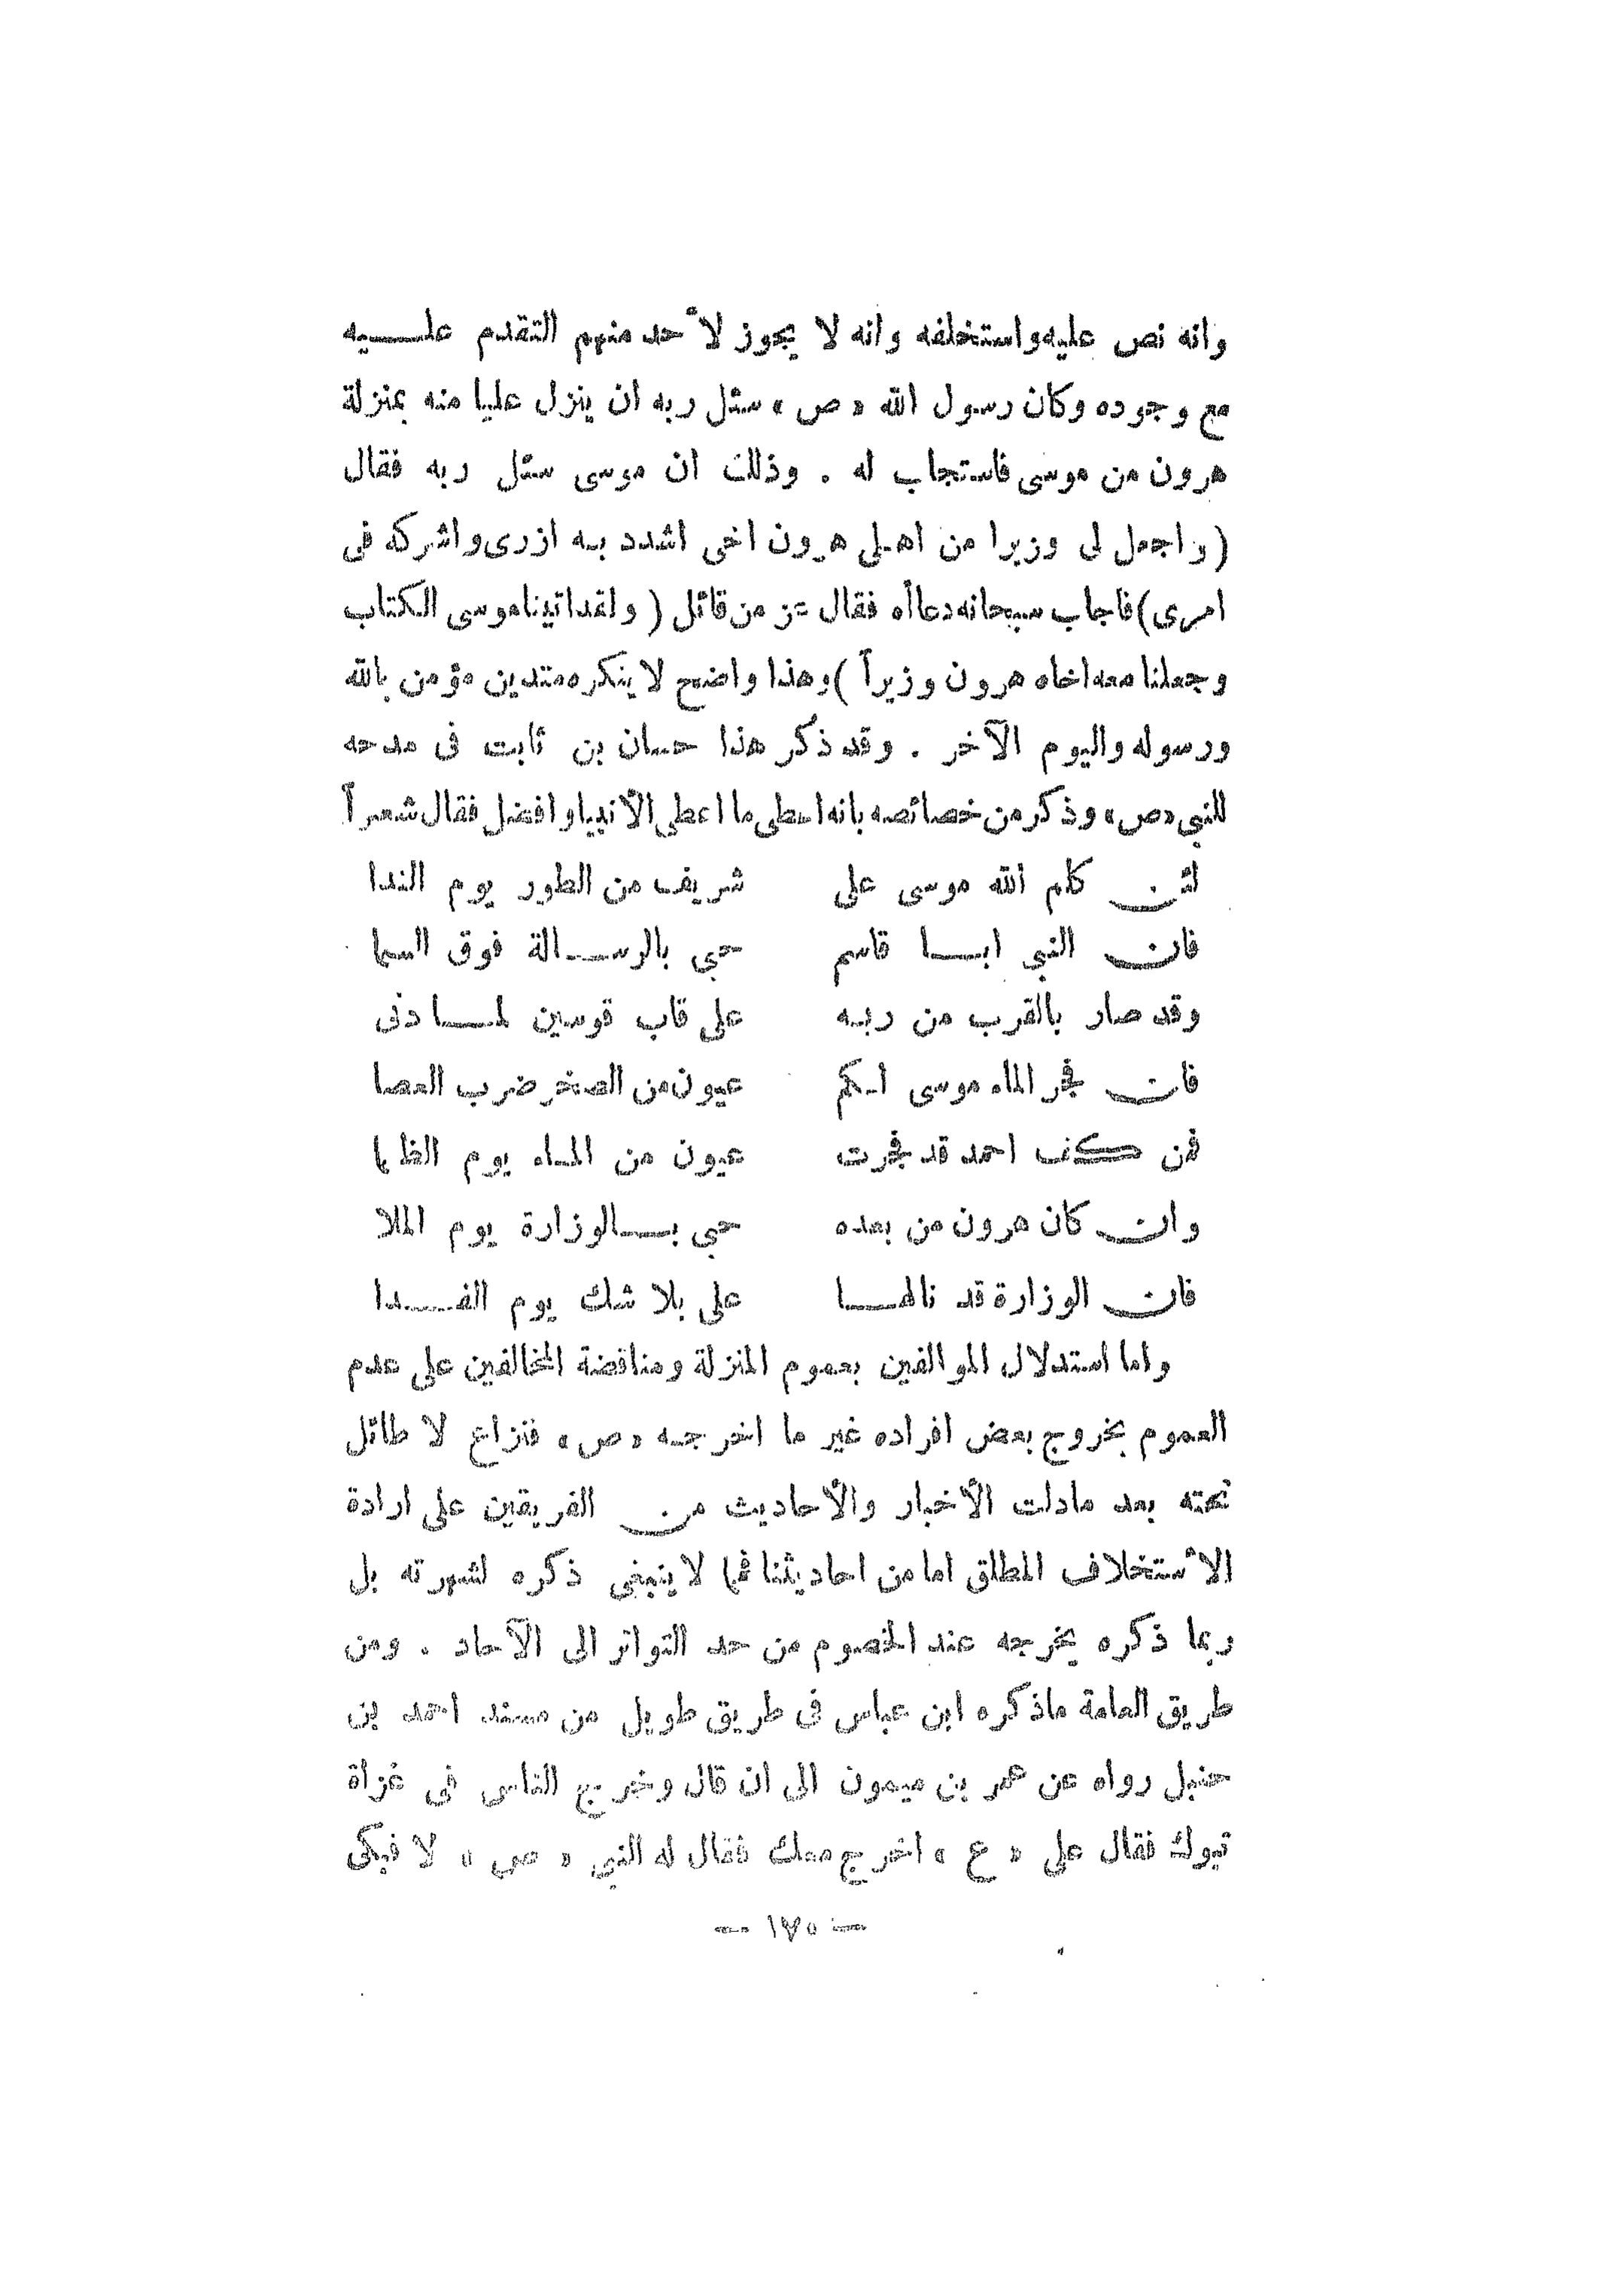 وانه نص عليه واستخلفه وانه لا يجوز لأحد منهم التقدم عليه
مع وجوده وكان رسول الله «ص» سئل ربه ان ينزل عليا منه بمنزلة
هرون من موسى فاستجاب له . وذلك ان موسى سئل ربه فقال
(واجعل لى وزيرا من اهلى هرون اخى اشدد به ازرى واشركه فى
امرى) فاجاب سبحانه دعاأه فقال عز من قائل (ولقد اتيناموسى الكتاب
وجعلنا معه اخاه هرون وزيراً) وهذا واضح لا ينكره متدين مؤمن بالله
ورسوله واليوم الآخر . وقد ذكر هذا حسان بن ثابت فى مدحه
للنبي «ص» وذكر من خصائصه بانه اعطى ما اعطى الأنبياو افضل فقال شعراً
لئن كلم الله موسى على شريف من الطور يوم الندا
فان النبي ابا قاسم حبي بالرسالة فوق السما
وقد صار بالقرب من ربه على قاب قوسين لما دنى
فان فجر الماء موسى لكم عيون من الصخر ضرب العصا
فمن كف احمد قد فجرت عيون من الماء يوم الظما
وان كان هرون من بعده حبي بالوزارة يوم الملا
فان الوزارة قد نالها على بلا شك يوم الفدا
واما استدلال الموالفين بعموم المنزلة ومناقضة المخالفين على عدم
العموم بخروج بعض افراده غير ما اخرجه «ص» فنزاع لا طائل
تحته بعد مادلت الأخبار والأحاديث من الفريقين على ارادة
الأستخلاف المطلق اما من احاديثنا فما لا ينبغى ذكره لشهرته بل
ربما ذكره يخرجه عند الخصوم من حد التواتر الى الآحاد . ومن
طريق العامة ماذكره ابن عباس فى طريق طويل من مسند احمد بن
حنبل رواه عن عمر بن ميمون الى ان قال وخرج الناس فى غزاة
تبوك فقال على «ع» اخرج معك فقال له النبي «ص» لا فبكى
— ١٧٥ —